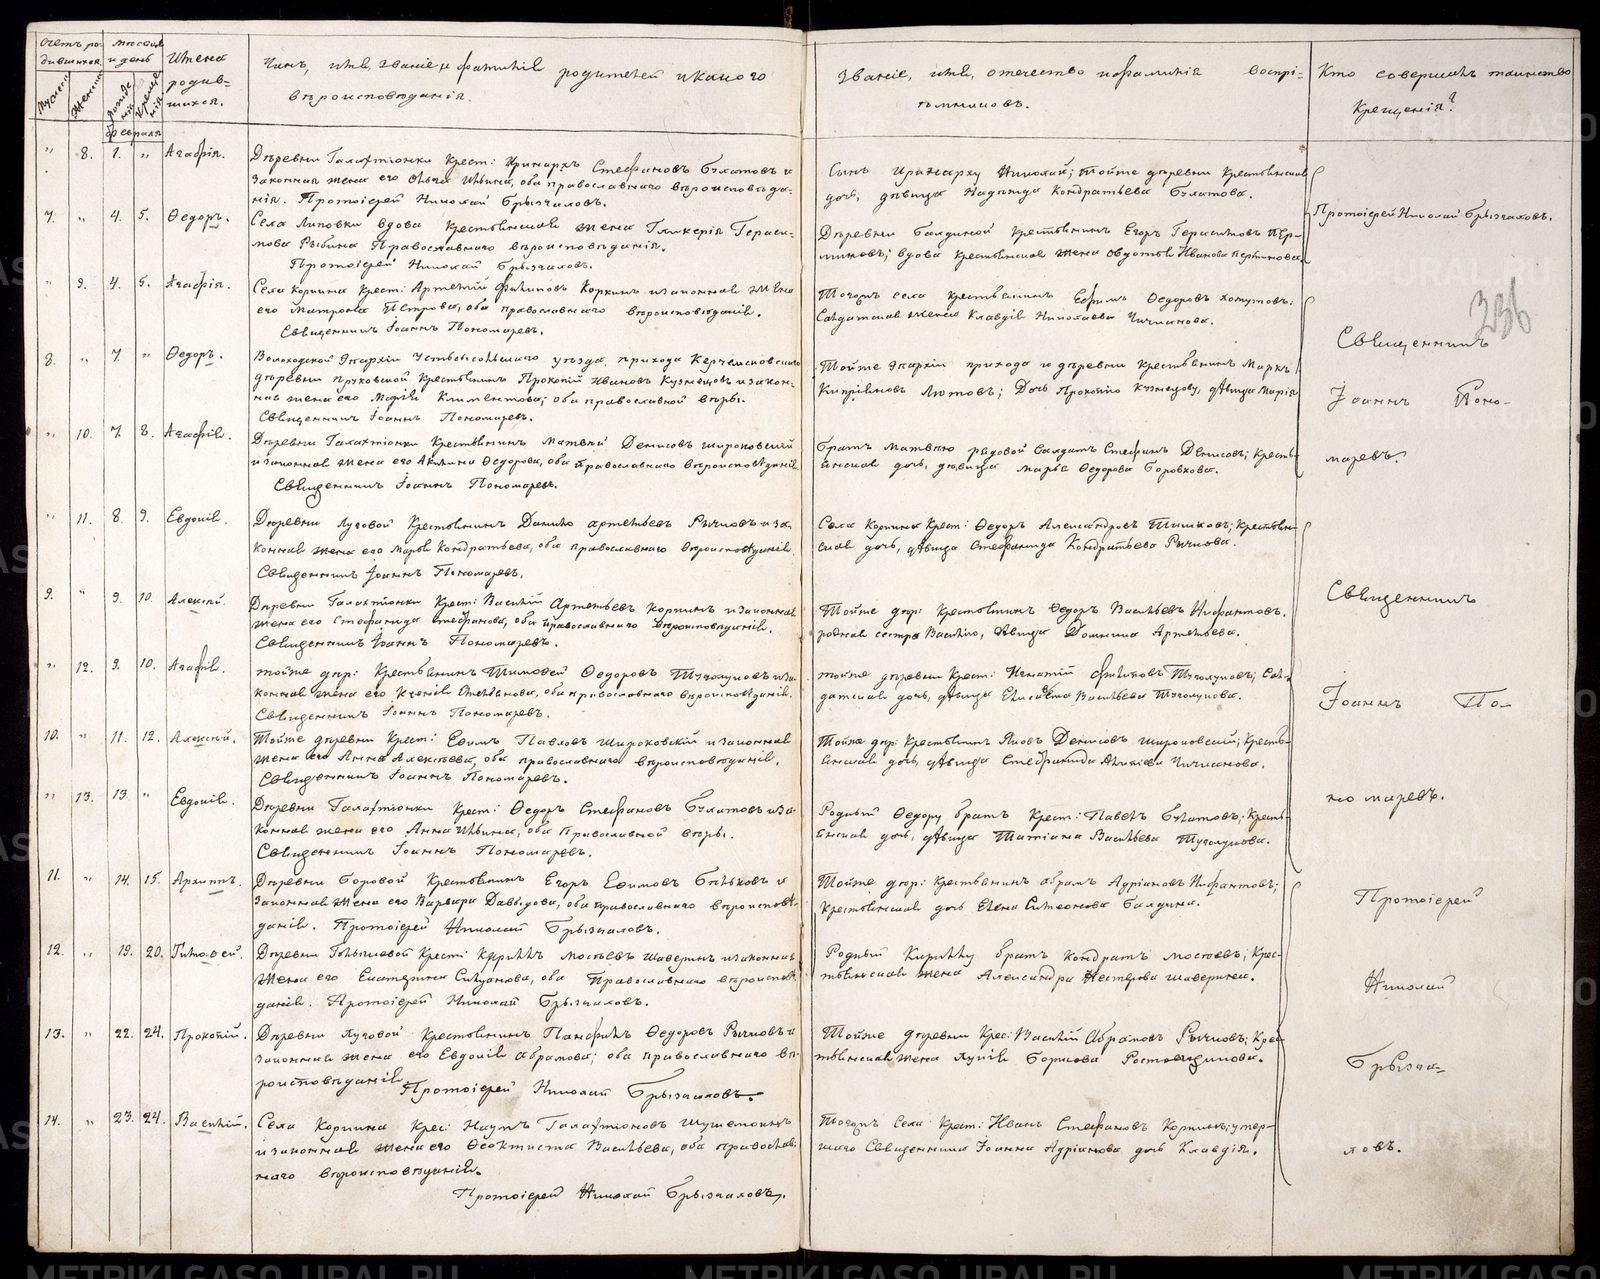 Счетъ ро-
дившихся
Мужеск.
Женск.
Мѣсяцъ
и день
Рожде-
нія
Креще-
нія
Имена
родив-
шихся.
Чинъ, имя, званіе и фамилія родителей и какого
вѣроисповѣданія.
Званіе, имя, отечество и фамилія воспрі-
емниковъ.
Кто совершалъ таинство
Крещенія?
февраля
„ 8. 1. „ Агафія.
Деревни Галахтіонки Крест: Иринархъ Стефановъ Булатовъ и
Законная жена его Ольга Ильина, оба православнаго вѣроисповѣда-
нія. Протоіерей Николай Брызгаловъ.
Сынъ Иринарху Николай; тойже деревни Крестьянская
дочь, дѣвица Надежда Кондратьева Булатова.
Протоіерей Николай Брызгаловъ.
7. „ 4. 5. Ѳедоръ.
Села Липовки вдова Крестьянская жена Гликерія Гераси-
мова Рыбина Православнаго вѣроисповѣданія.
Протоіерей Николай Брызгаловъ.
Деревни Балдиной Крестьянинъ Егоръ Герасимовъ Пер-
миновъ; вдова Крестьянская жена Овдотья Иванова Перминова.
„ 9. 4. 5. Агафія.
Села Коркина Крест: Артемій Филиповъ Коркинъ и законная жена
его Матрона Петрова, оба православнаго вѣроисповѣданія.
Священникъ Іоаннъ Пономаревъ.
Тогожъ села Крестьянинъ Ефимъ Ѳедоровъ Хомутовъ;
Солдатская жена Клавдія Николаева Чичканова.
236
Священникъ
Іоаннъ Поно-
маревъ.
8. „ 7. „ Ѳедоръ.
Вологодской Епархіи Устьсысольскаго уѣзда прихода Керчемского
деревни Пруховской Крестьянинъ Прокопій Ивановъ Кузнецовъ и закон-
ная жена его Марья Климентова; оба православной вѣры.
Священникъ Іоаннъ Пономаревъ.
Тойже Епархіи прихода и деревни Крестьянинъ Маркъ
Кипріяновъ Лютовъ; Дочь Прокопію Кузнецову, дѣвица Марія
„ 10. 7. 8. Агафія.
Деревни Галахтіонки Крестьянинъ Матвѣй Денисовъ Широковскій
и законная жена его Акилина Ѳедорова, оба Православнаго вѣроисповѣданія
Священникъ Іоаннъ Пономаревъ.
братъ Матвѣю рядовой Солдатъ Стефанъ Денисовъ; Кресть-
янская дочь, дѣвица Марья Ѳедорова Боровкова.
„ 11. 8. 9. Евдокія.
Деревни Луговой Крестьянинъ Данило Артемьевъ Рычковъ и за-
конная жена его Марья Кондратьева, оба православнаго вѣроисповѣданія
Священникъ Іоаннъ Пономаревъ.
Села Коркина Крест: Ѳедоръ Александровъ Тишковъ; Крестьян-
ская дочь, дѣвица Стефанида Кондратьева Рычкова.
Священникъ
Іоаннъ По-
номаревъ.
9. „ 9. 10. Алексѣй.
Деревни Галахтіонки Крест: Василій Артемьевъ Коркинъ и законная
жена его Стефанида Стефанова, оба православнаго вѣроисповѣданія.
Священникъ Іоаннъ Пономаревъ.
Тойже дер: Крестьянинъ Ѳедоръ Васильевъ Нифантовъ.
родная сестра Василію, дѣвица Домника Артемьева.
„ 12. 9. 10. Агафія.
тойже дер: Крестьянинъ Тимоѳей Ѳедоровъ Туголуковъ и за-
конная жена его Ксенія Стефанова, оба православнаго вѣроисповѣданія.
Священникъ Іоаннъ Пономаревъ.
тойже деревни Крест: Игнатій Филиповъ Туголуковъ; Сол-
датская дочь, дѣвица Елисавета Васильева Туголукова.
10. „ 11. 12. Алексѣй.
Тойже деревни Крест: Ефимъ Павловъ Широковскій и законная
жена его Анна Алексѣева, оба православнаго вѣроисповѣданія.
Священникъ Іоаннъ Пономаревъ.
Тойже дер: Крестьянинъ Яковъ Денисовъ Широковскій; Кресть-
янская дочь, дѣвица Стефанида Чичканова.
„ 13. 13. „ Евдокія.
Деревни Галахтіонки Крест: Ѳедоръ Стефановъ Булатовъ и за-
конная жена его Анна Ильина, оба Православной вѣры.
Священникъ Іоаннъ Пономаревъ.
Родный Ѳедору братъ Крест: Павелъ Булатовъ; Кресть-
янская дочь, дѣвица Татіана Васильева Туголукова.
11. „ 14. 15. Архиппъ.
Деревни Боровой Крестьянинъ Егоръ Ефимовъ Бѣльковъ и
Законная жена его Варвара Давыдова, оба православнаго вѣроиспов-
данія. Протоіерей Николай Брызгаловъ.
Тойже дер: Крестьянинъ Абрамъ Адріановъ Нифантовъ;
Крестьянская дочь Елена Симеонова Балдина.
Протоіерей
Николай
Брызга-
ловъ.
12. „ 19. 20. Тимоѳей.
Деревни Голышевой Крест: Кириллъ Мосѣевъ Шаверинъ и законная
жена его Екатерина Силуанова, оба Православнаго вѣроиспов-
данія. Протоіерей Николай Брызгаловъ.
Родный Кириллу братъ Кондратъ Мосѣевъ; Крес-
тьянская жена Александра Нестерова Шаверина.
13. „ 22. 24. Прокопій.
Деревни Луговой Крестьянинъ Панфилъ Ѳедоровъ Рычковъ и
Законная жена его Евдокія Абрамова; оба православнаго вѣ-
роисповѣданія Протоіерей Николай Брызгаловъ.
Тойже деревни Крес: Василій Абрамовъ Рычковъ; Крес-
тьянская жена Лукія Борисова
14. „ 23. 24. Василій.
Села Коркина Крес: Наумъ Галахтіоновъ
и законная жена его Ѳеоктиста Васильева, оба православ-
наго вѣроисповѣданія.
Протоіерей Николай Брызгаловъ.
Тогожъ Села Крест: Иванъ Стефановъ Коркинъ; умер-
шаго Священника Іоанна Адріанова дочь Клавдія.
METRIKI.GASO-URAL.RU